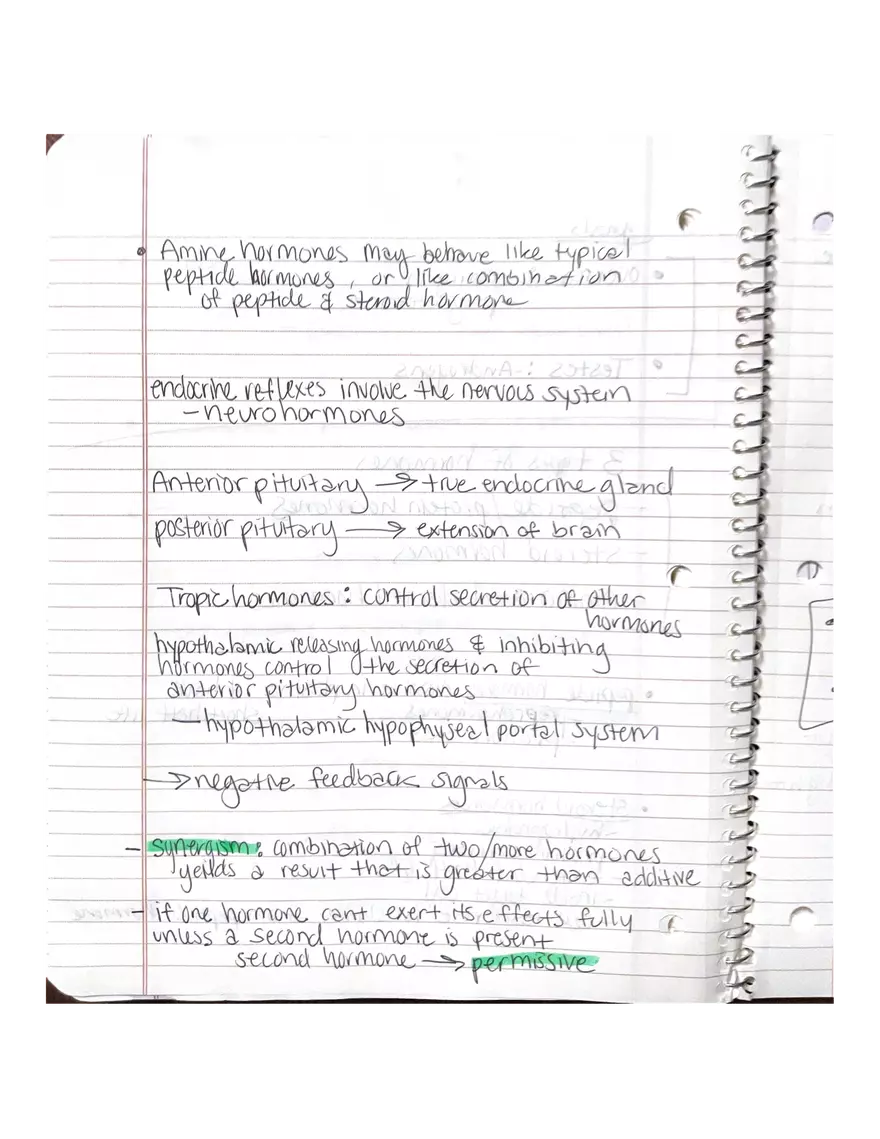 • Amine hormones may behave like typical
peptide hormones, or like combination
of peptide & steroid hormone
endocrine reflexes involve the nervous system
- neurohormones
Anterior pituitary → true endocrine gland
posterior pituitary → extension of brain
Tropic hormones: control secretion of other
hormones
hypothalamic releasing hormones & inhibiting
hormones control the secretion of
anterior pituitary hormones
- hypothalamic hypophyseal portal system
→ negative feedback signals
- synergism: combination of two/more hormones
yeilds a result that is greater than additive
- if one hormone cant exert its effects fully
unless a second hormone is present
second hormone → permissive